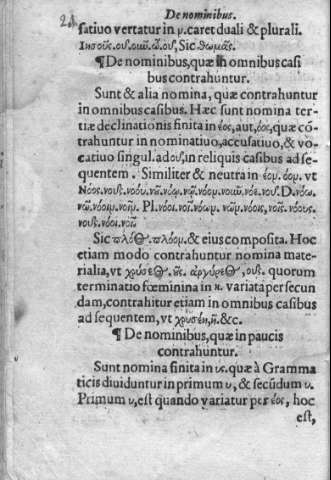 De nominibus.
satiuo vertatur in μ. caret duali & plurali.
Ιησοῦς. οῦ. οῦ. Sic θωμᾶς.
¶ De nominibus, quæ in omnibus casi
bus contrahuntur.
Sunt & alia nomina, quæ contrahuntur
in omnibus casibus. Hæc sunt nomina ter-
tiæ declinationis finita in έος, aut, όος, quæ cõ-
trahuntur in nominatiuo, accusatiuo, & vo-
catiuo singul. ad ους, in reliquis casibus ad se-
quentem. Similiter & neutra in έομ. όομ. vt
Νόος. νοῦς. νόου. νῶ. νόομ. νοῦμ. νόε. νοῦ. D. νόω.
νῶ. νόοιμ. νοῖμ. Pl. νόοι. νοῖ. νόωμ. νῶμ. νόοις, νοῖς. νόους.
νοῦς. νόοι. νοῖ.
Sic πλόος. πλόομ. & eius composita. Hoc
etiam modo contrahuntur nomina mate-
rialia, vt χρύσεος. οῦς. ἀργύρεος, οῦς. quorum
terminatio fœminina in η. variata per secun
dam, contrahitur etiam in omnibus casibus
ad sequentem, vt χρυσέη, ῆ. &c.
¶ De nominibus, quæ in paucis
contrahuntur.
Sunt nomina finita in υς. quæ à Gramma
ticis diuiduntur in primum υ, & secũdum υ.
Primum υ, est quando variatur per έος, hoc
est,